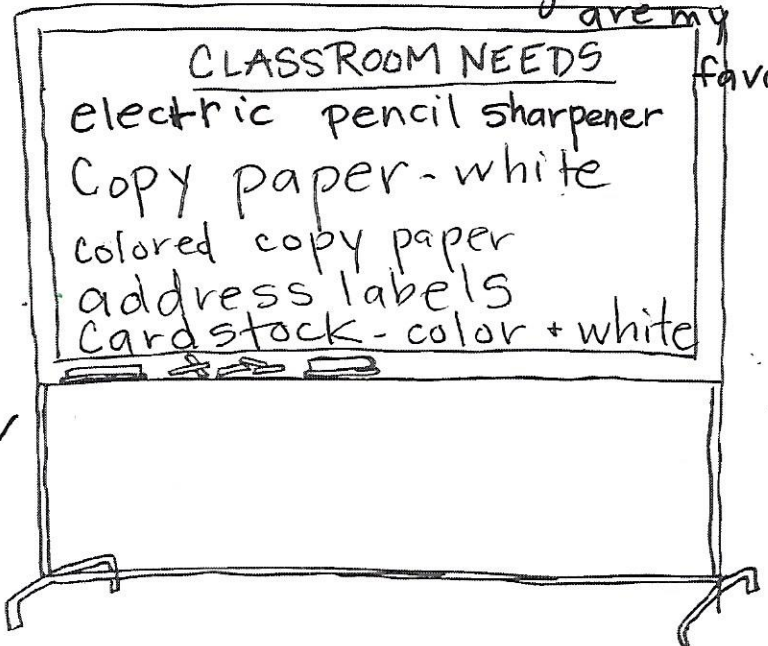 are my
favo
CLASSROOM NEEDS
electric pencil sharpener
Copy paper - white
colored copy paper
address labels
Cardstock - color + white